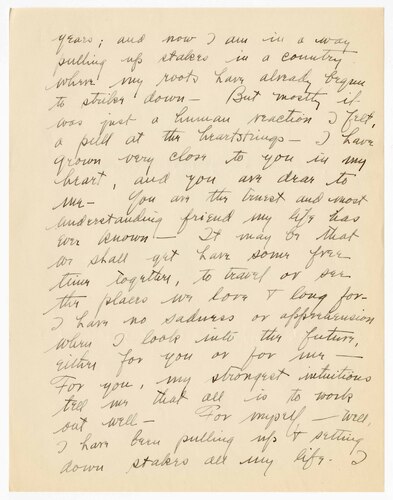 years; and now I am in a way
pulling up stakes in a country
where my roots have already begun
to strike down — But mostly it
was just a human reaction I felt,
a pull at the heartstrings — I have
grown very close to you in my
heart, and you are dear to
me — You are the truest and most
understanding friend my life has
ever known — It may be that
we shall yet have some free
time together, to travel or see
the places we love & long for —
I have no sadness or apprehension
when I look into the future,
either for you or for me —
For you, my strongest intuitions
tell me that all is to work
out well — For myself — well,
I have been pulling up & setting
down stakes all my life. I